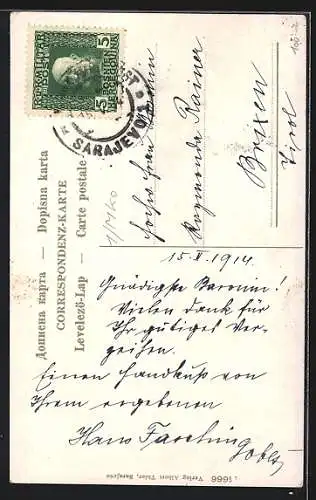 Дописна карта — Dopisna karta
CORRESPONDENZ-KARTE
Levelező-Lap — Carte postale
K.u.K. MILITÄRPOST
5 5
SARAJEVO 1
Hochw. Frau Baronin
Raymonda Rainer
Brixen
Tirol
15-V. 1914.
Gnädigste Baronin!
Vielen dank für
Ihr gütiges Ver-
zeihen.
Einen Handkuß von
Ihrem ergebenen
Hans
1666 Verlag Albert Thier, Sarajevo